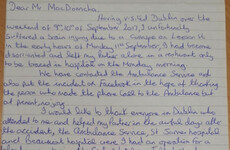 Dear Mr. MacDonncha,
Having visited Dublin over the
weekend of 9th, 10th of September 2017, I unfortunately
suffered a brain injury due to a
the early hours of Monday 11th September, I had become
disorientated and left my
to be located in hospital on the Monday morning.
We have contacted the Ambulance Service and
also put the incident on Facebook in the hope of finding
the person who made the phone call to the Ambulance but
at present, no joy.
I would like to thank everyone in Dublin who
attended to me and helped my father in the awful days after
the accident, the Ambulance Service, St James hospital
and Beaumont hospital where I had an operation for a